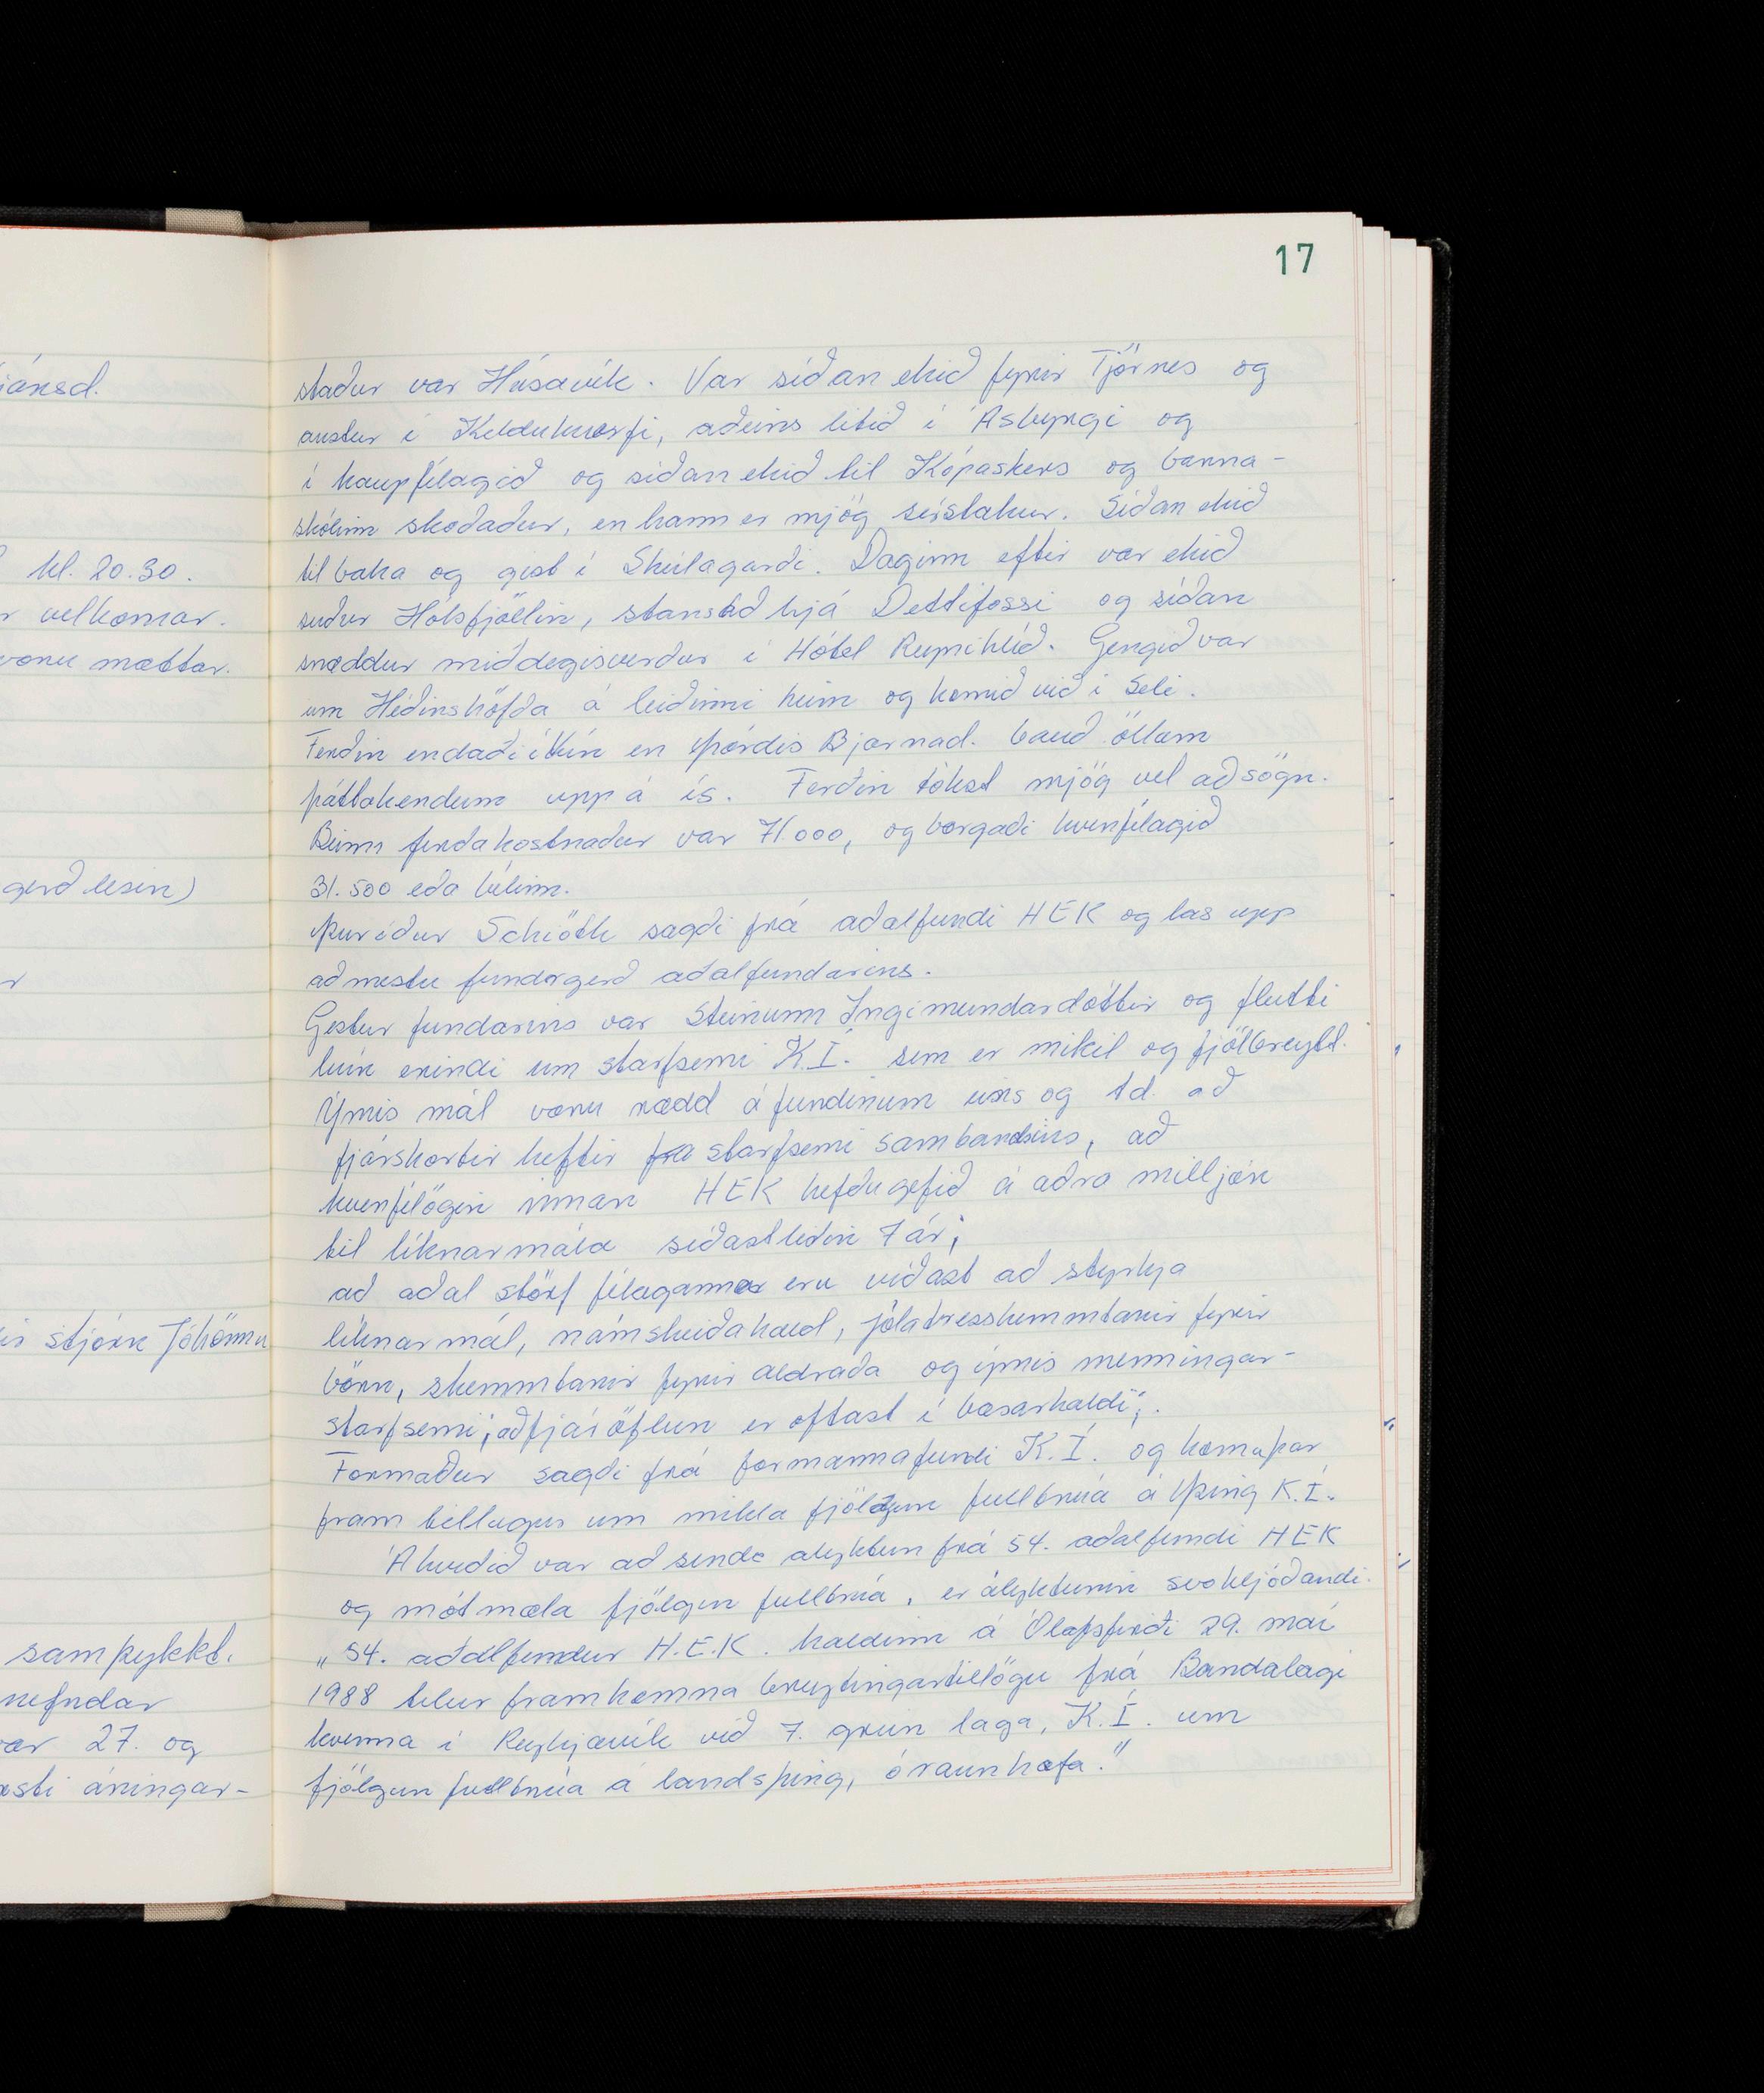 17
staður var Húsavík. Var síðan ekið fyrir Tjörnes og
austur í Kelduhverfi, aðeins litið í Ásbyrgi og
í kaupfélagið og síðan ekið til Kópaskers og barna-
skólinn skoðaður, en hann er mjög sérstakur. Síðan ekið
til baka og gist í Skúlagarði. Daginn eftir var ekið
suður Hólsfjöllin, stansað hjá Dettifossi og síðan
snæddur miðdegisverður í Hótel Reynihlíð. Gengið var
um Héðinshöfða á leiðinni heim og komið við í Seli.
Ferðin endaði í Kín en Þórdís Bjarnad. bauð öllum
þátttakendum upp á ís. Ferðin tókst mjög vel að sögn.
Beinn ferðakostnaður var 71.000, og borgaði kvenfélagið
31.500 eða bílinn.
Þuríður Schiöth sagði frá aðalfundi HEK og las upp
að mestu fundargerð aðalfundarins.
Gestur fundarins var Steinunn Ingimundardóttir og flutti
hún erindi um starfsemi K.Í. sem er mikil og fjölbreytt.
Ýmis mál voru rædd á fundinum eins og td. að
fjárskortir heftir starfsemi sambandsins, að
kvenfélögin innan HEK hefðu gefið á aðra milljón
til líknarmála síðastliðin 7 ár;
að aðal störf félaganna eru víðast að styrkja
líknarmál, námskeiðahald, jólatresskemmtanir fyrir
börn, skemmtanir fyrir aldraða og ýmis menningar-
starfsemi; að fjáröflun er oftast í basarhaldi;.
Formaður sagði frá formannafundi K.Í. og komu þar
fram tillögur um mikla fjölgun fulltrúa á Þing K.Í.
Ákveðið var að senda alyktun frá 54. aðalfundi HEK
og mótmæla fjölgun fulltrúa, er ályktunin svohljóðandi.
„54. aðalfundur H.E.K. haldinn á Ólafsfirði 29. maí
1988 telur framkomna breytingartillögu frá Bandalagi
kvenna í Reykjavík við 7. grein laga, K.Í. um
fjölgun fulltrúa á landsþing, óraunhæfa."
jánsd.
kl. 20.30.
velkomar.
voru mættar.
gerð lesin)
stjórn Jóhönnu
samþykkt.
nefndar
27. og
áningar-